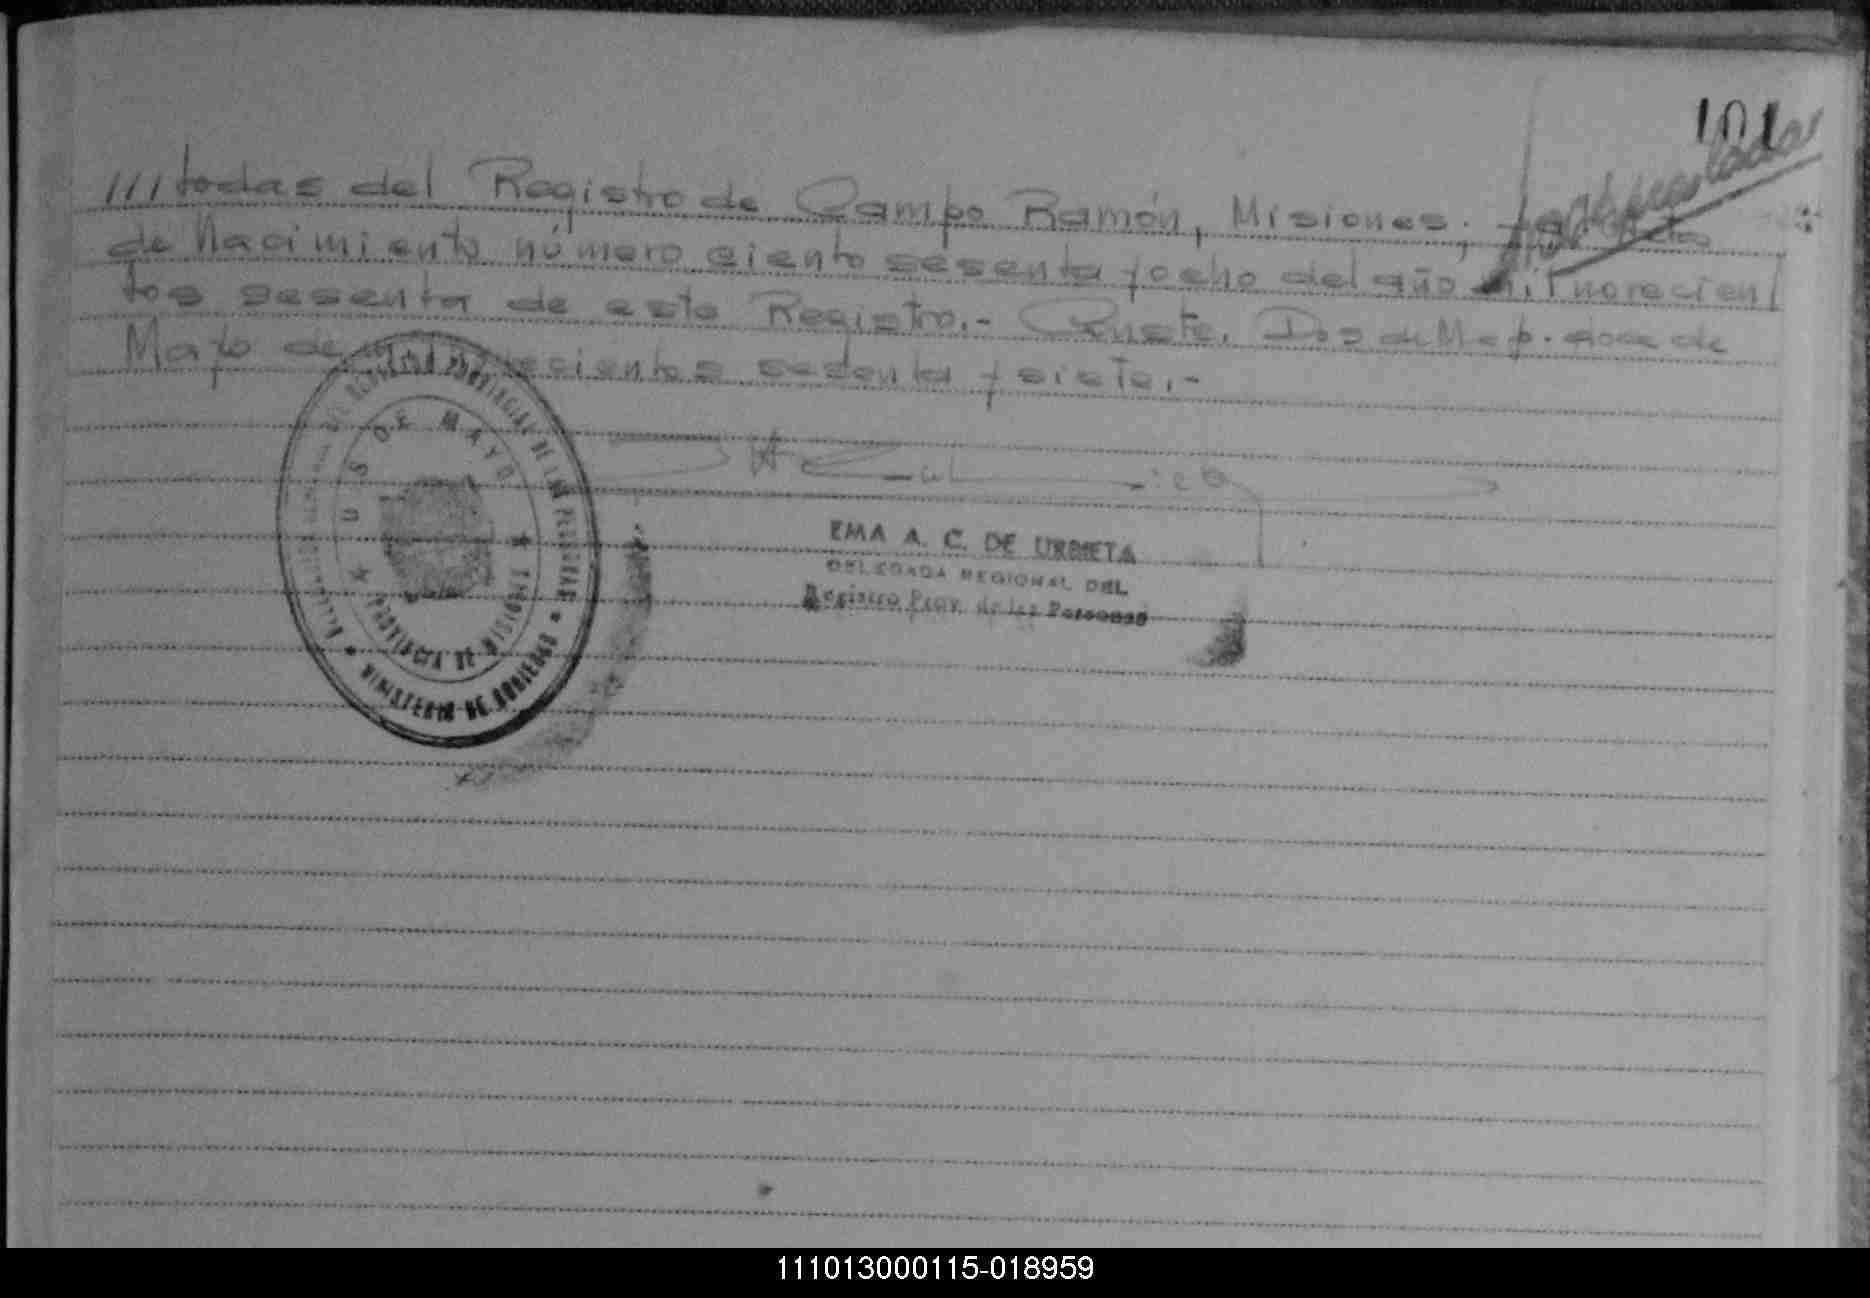 101
///todas del Registro de Campo Ramón, Misiones;
de Nacimiento número ciento sesenta y ocho del año mil novecien/
tos sesenta de este Registro.- Conste. Dos de Mayo. doce de
Mayo de novecientos sesenta y siete.-
DEL REGISTRO PROVINCIAL DE LAS PERSONAS
MINISTERIO DE GOBIERNO
DE MAYO
PROVINCIA DE MISIONES
EMA A. C. DE URBIETA
DELEGADA REGIONAL DEL
Registro Prov. de las Personas
111013000115-018959